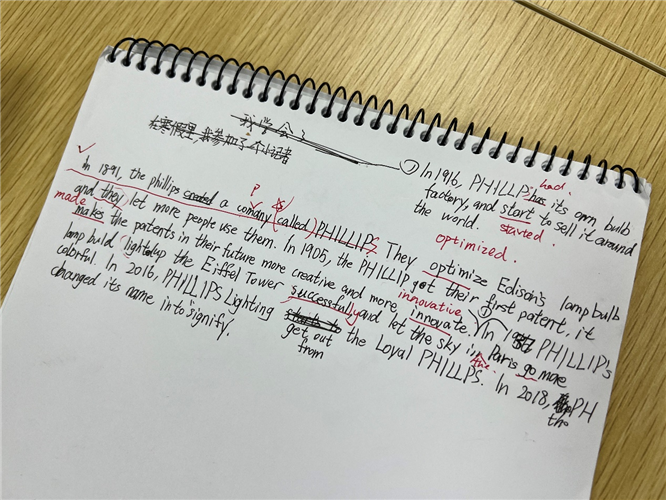 我学会了
在寒假里,我参加了一个小记者
① In 1916, PHILLIPS has its own bulb
had.
factory, and start to sell it around
started
the world.
optimized.
In 1891, the phillips created a comany (called) PHILLIPS. They optimize Edison's lamp bulb
P
and they let more people use them. In 1905, the PHILLIP got their first patent, it
made
makes the patents in their future more creative and more innovate. ① In PHILLIP'S
innovative
lamp build lighted up the Eiffel Tower successfully and let the sky in Paris go more
colorful. In 2016, PHILLIPS Lighting get out from the Loyal PHILLIPS. In 2018, PH
the.
changed its name into "signify.
the